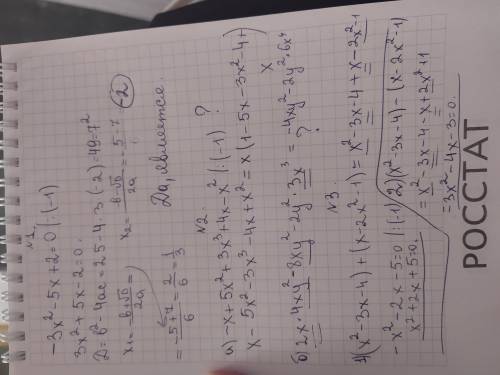 №1.
-3x²-5x+2=0 |:(-1)
3x²+5x-2=0.
D=b²-4ac=25-4·3·(-2)=49=7²
x₁=(-b+√D)/2a= x₂=(-b-√D)/2a=(-5-7)/6 -2
=(-5+7)/6=2/6=1/3 Да, является.
№2.
а) -x+5x²+3x³+4x-x² |:(-1) ?
x-5x²-3x³-4x+x²=x(1-5x-3x²-4+x
б) 2x·4xy²-8xy²-2y²·3x³=-4xy²-2y²·6x⁴
?
№3
1)(x²-3x-4)+(x-2x²-1)=x²-3x-4+x-2x²-1
-x²-2x-5=0 |:(-1) 2)(x²-3x-4)-(x-2x²-1)
x²+2x+5=0. =x²-3x-4-x+2x²+1
=3x²-4x-3=0.
РОССТАТ